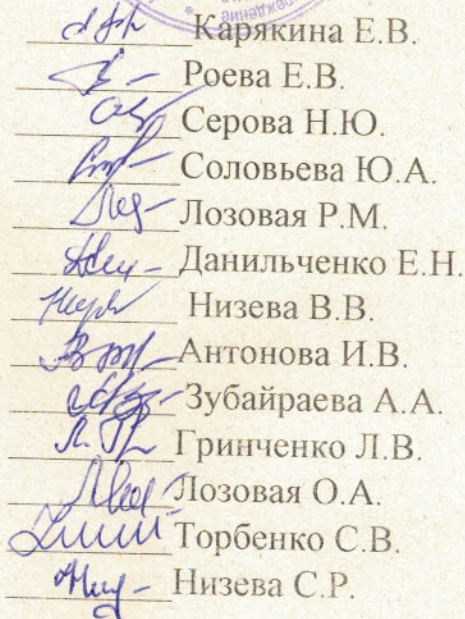 Карякина Е.В.
Роева Е.В.
Серова Н.Ю.
Соловьева Ю.А.
Лозовая Р.М.
Данильченко Е.Н.
Низева В.В.
Антонова И.В.
Зубайраева А.А.
Гринченко Л.В.
Лозовая О.А.
Торбенко С.В.
Низева С.Р.